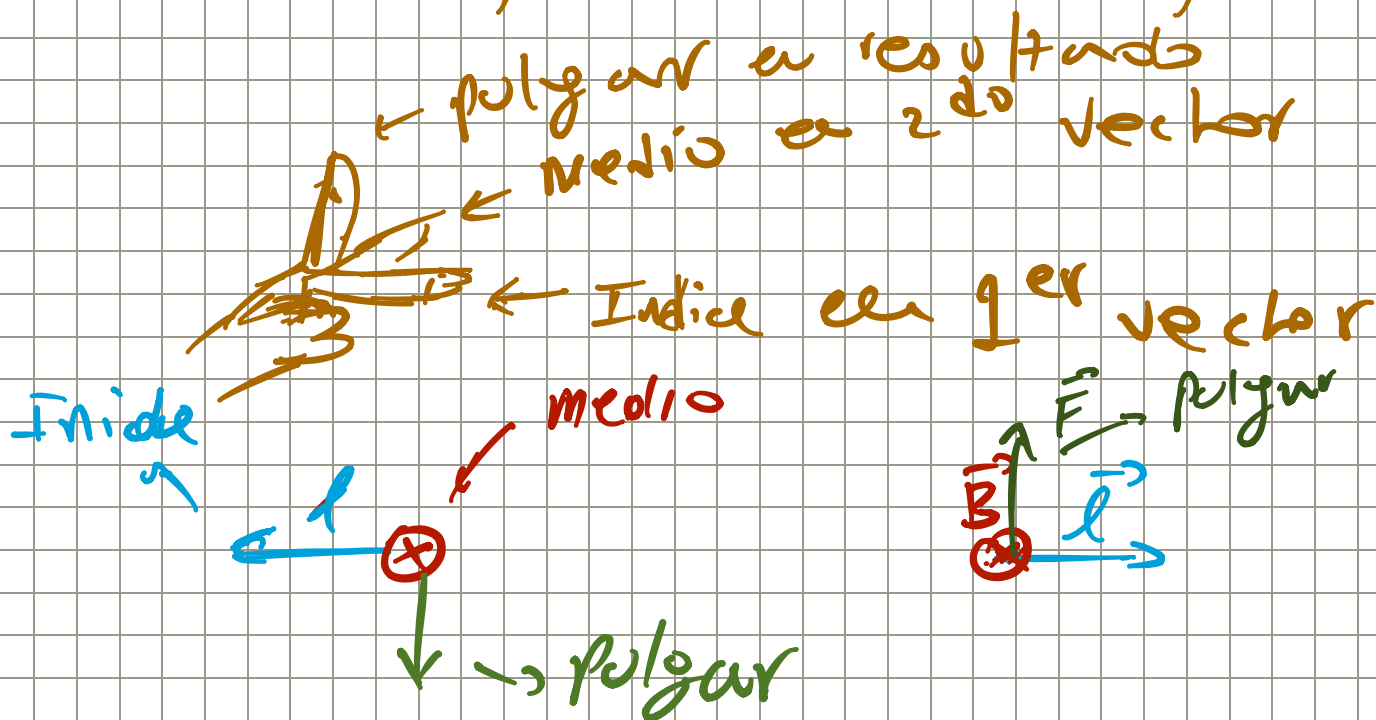 polgar en resultado
medio en 2do vector
Indice en 1er vector
Inide
medio
F polgar
B
l
l
polgar